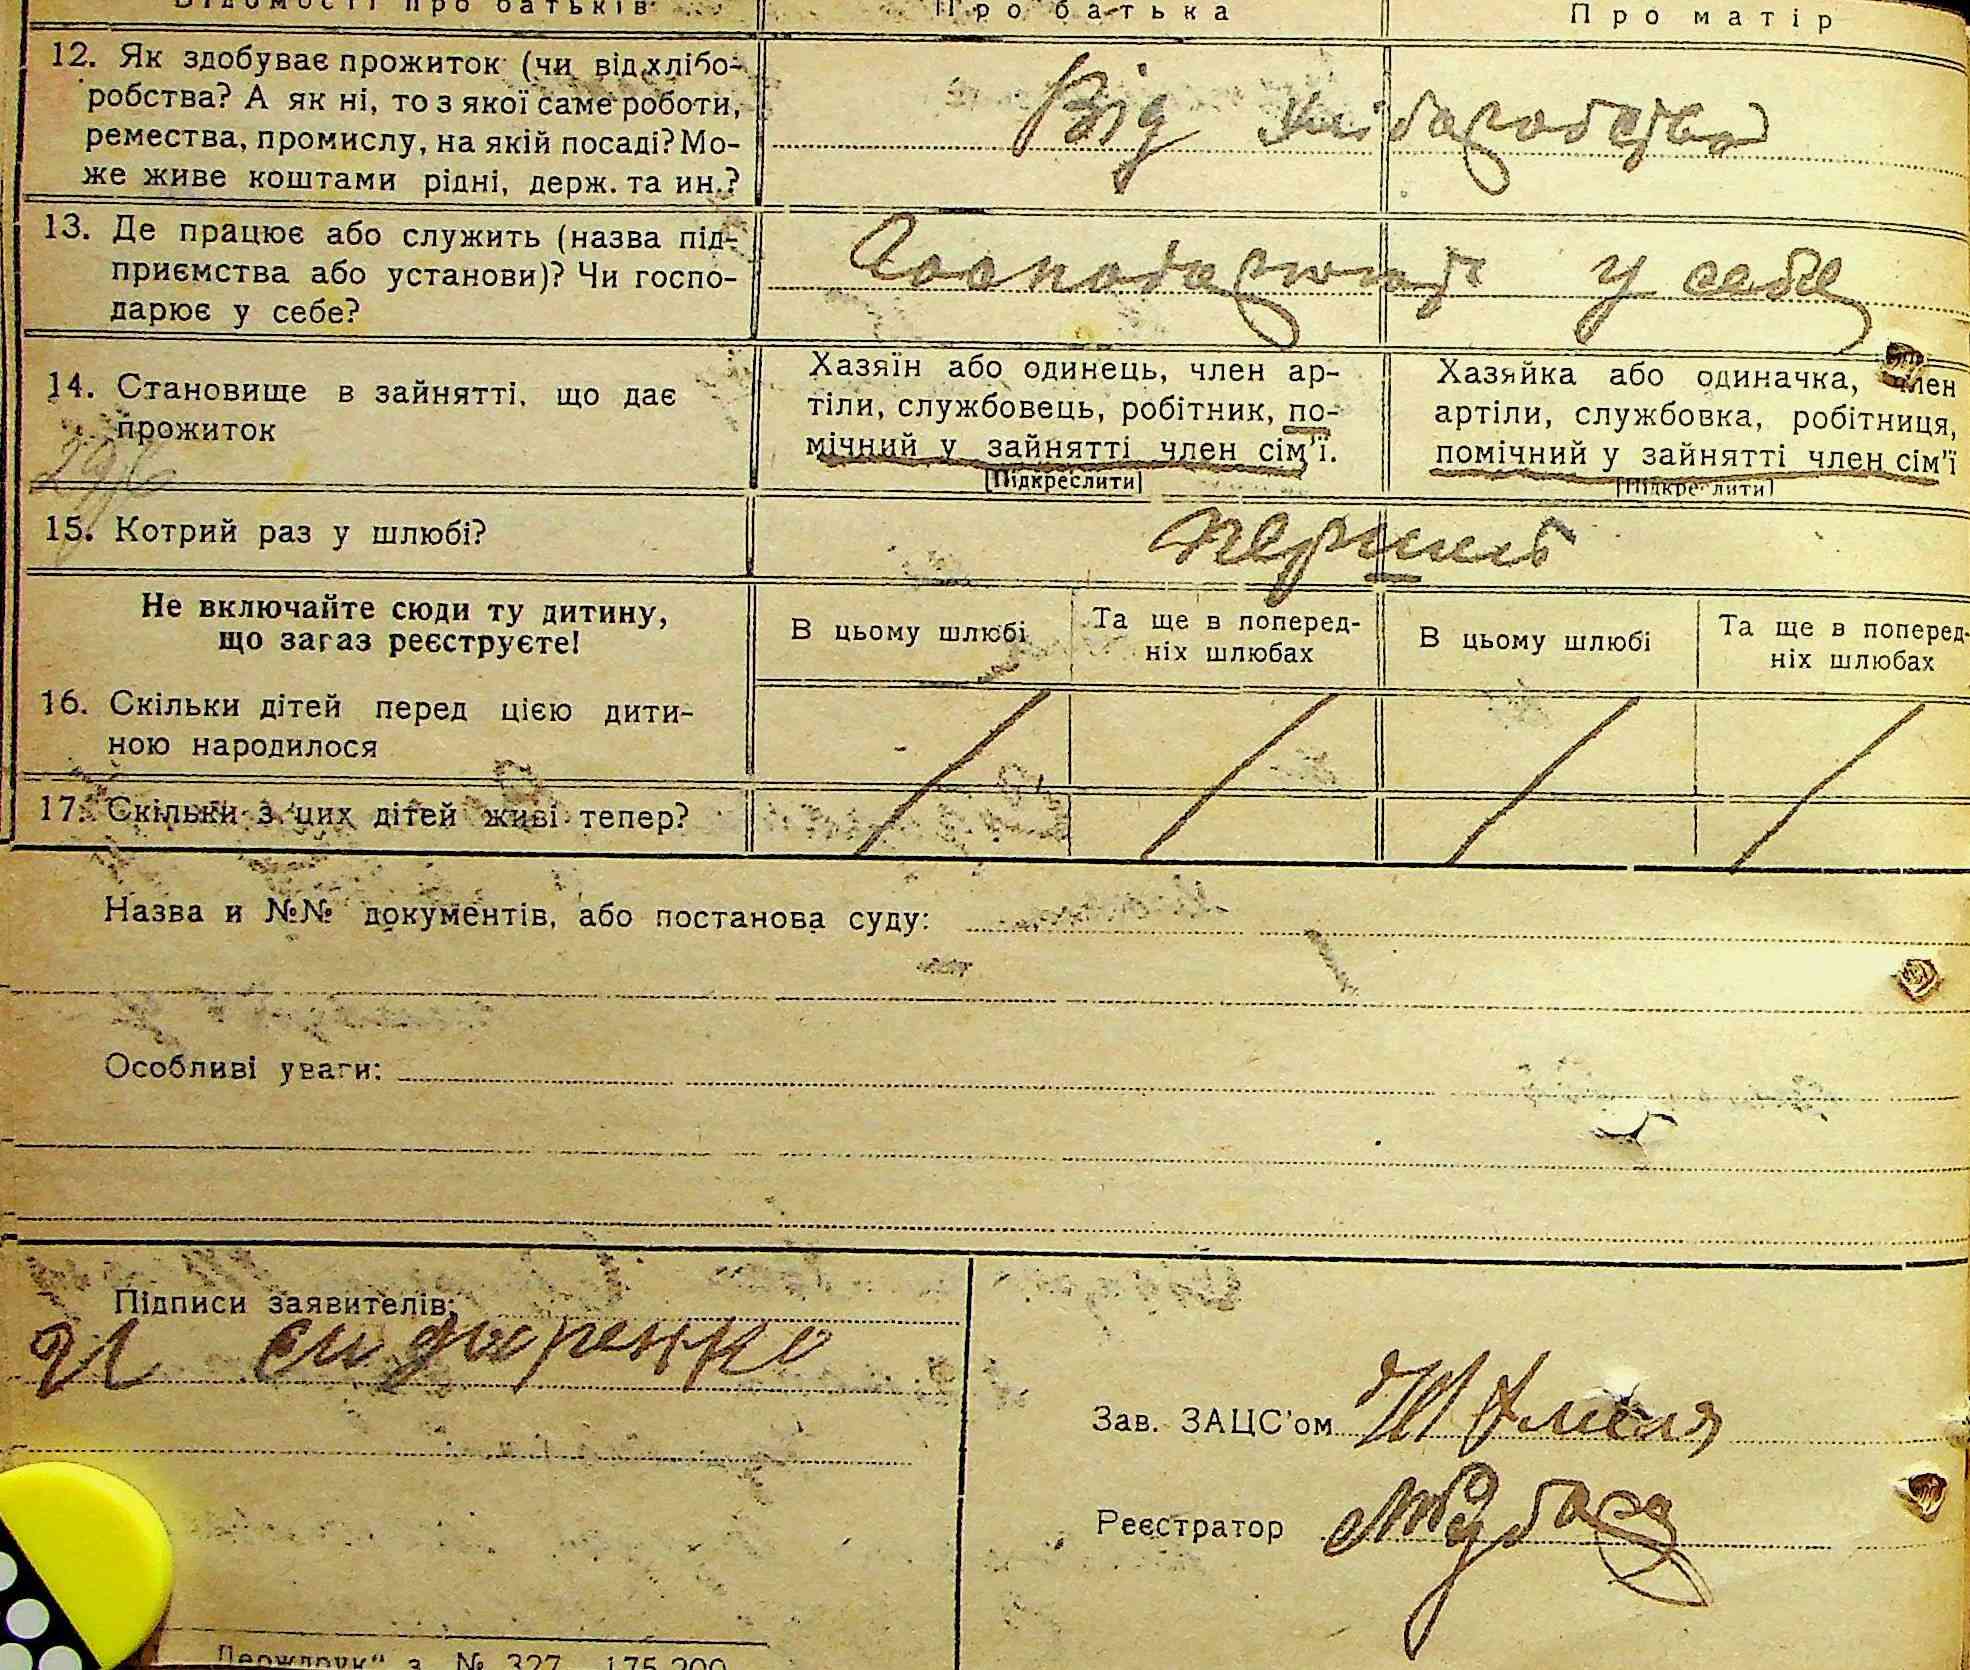 Відомості про батьків Про батька Про матір
12. Як здобуває прожиток (чи від хлібо-
робства? А як ні, то з якої саме роботи,
ремества, промислу, на якій посаді? Мо-
же живе коштами рідні, держ. та ин.?
Від хліборобства
13. Де працює або служить (назва під-
приємства або установи)? Чи госпо-
дарює у себе?
Господарюють у себе
14. Становище в зайнятті, що дає
прожиток
Хазяїн або одинець, член ар-
тіли, службовець, робітник, по-
мічний у зайнятті член сім'ї.
(Підкреслити)
Хазяйка або одиначка, член
артіли, службовка, робітниця,
помічний у зайнятті член сім'ї
(Підкреслити)
15. Котрий раз у шлюбі?
перший
Не включайте сюди ту дитину,
що зараз реєструєте!
В цьому шлюбі
Та ще в поперед-
ніх шлюбах
В цьому шлюбі
Та ще в поперед-
ніх шлюбах
16. Скільки дітей перед цією дити-
ною народилося
17. Скільки з цих дітей живі тепер?
Назва и №№ документів, або постанова суду:
Особливі уваги:
Підписи заявителів:
И сидоренко
Зав. ЗАЦС'ом
Реєстратор
Держдрук" з. № 327 175.200